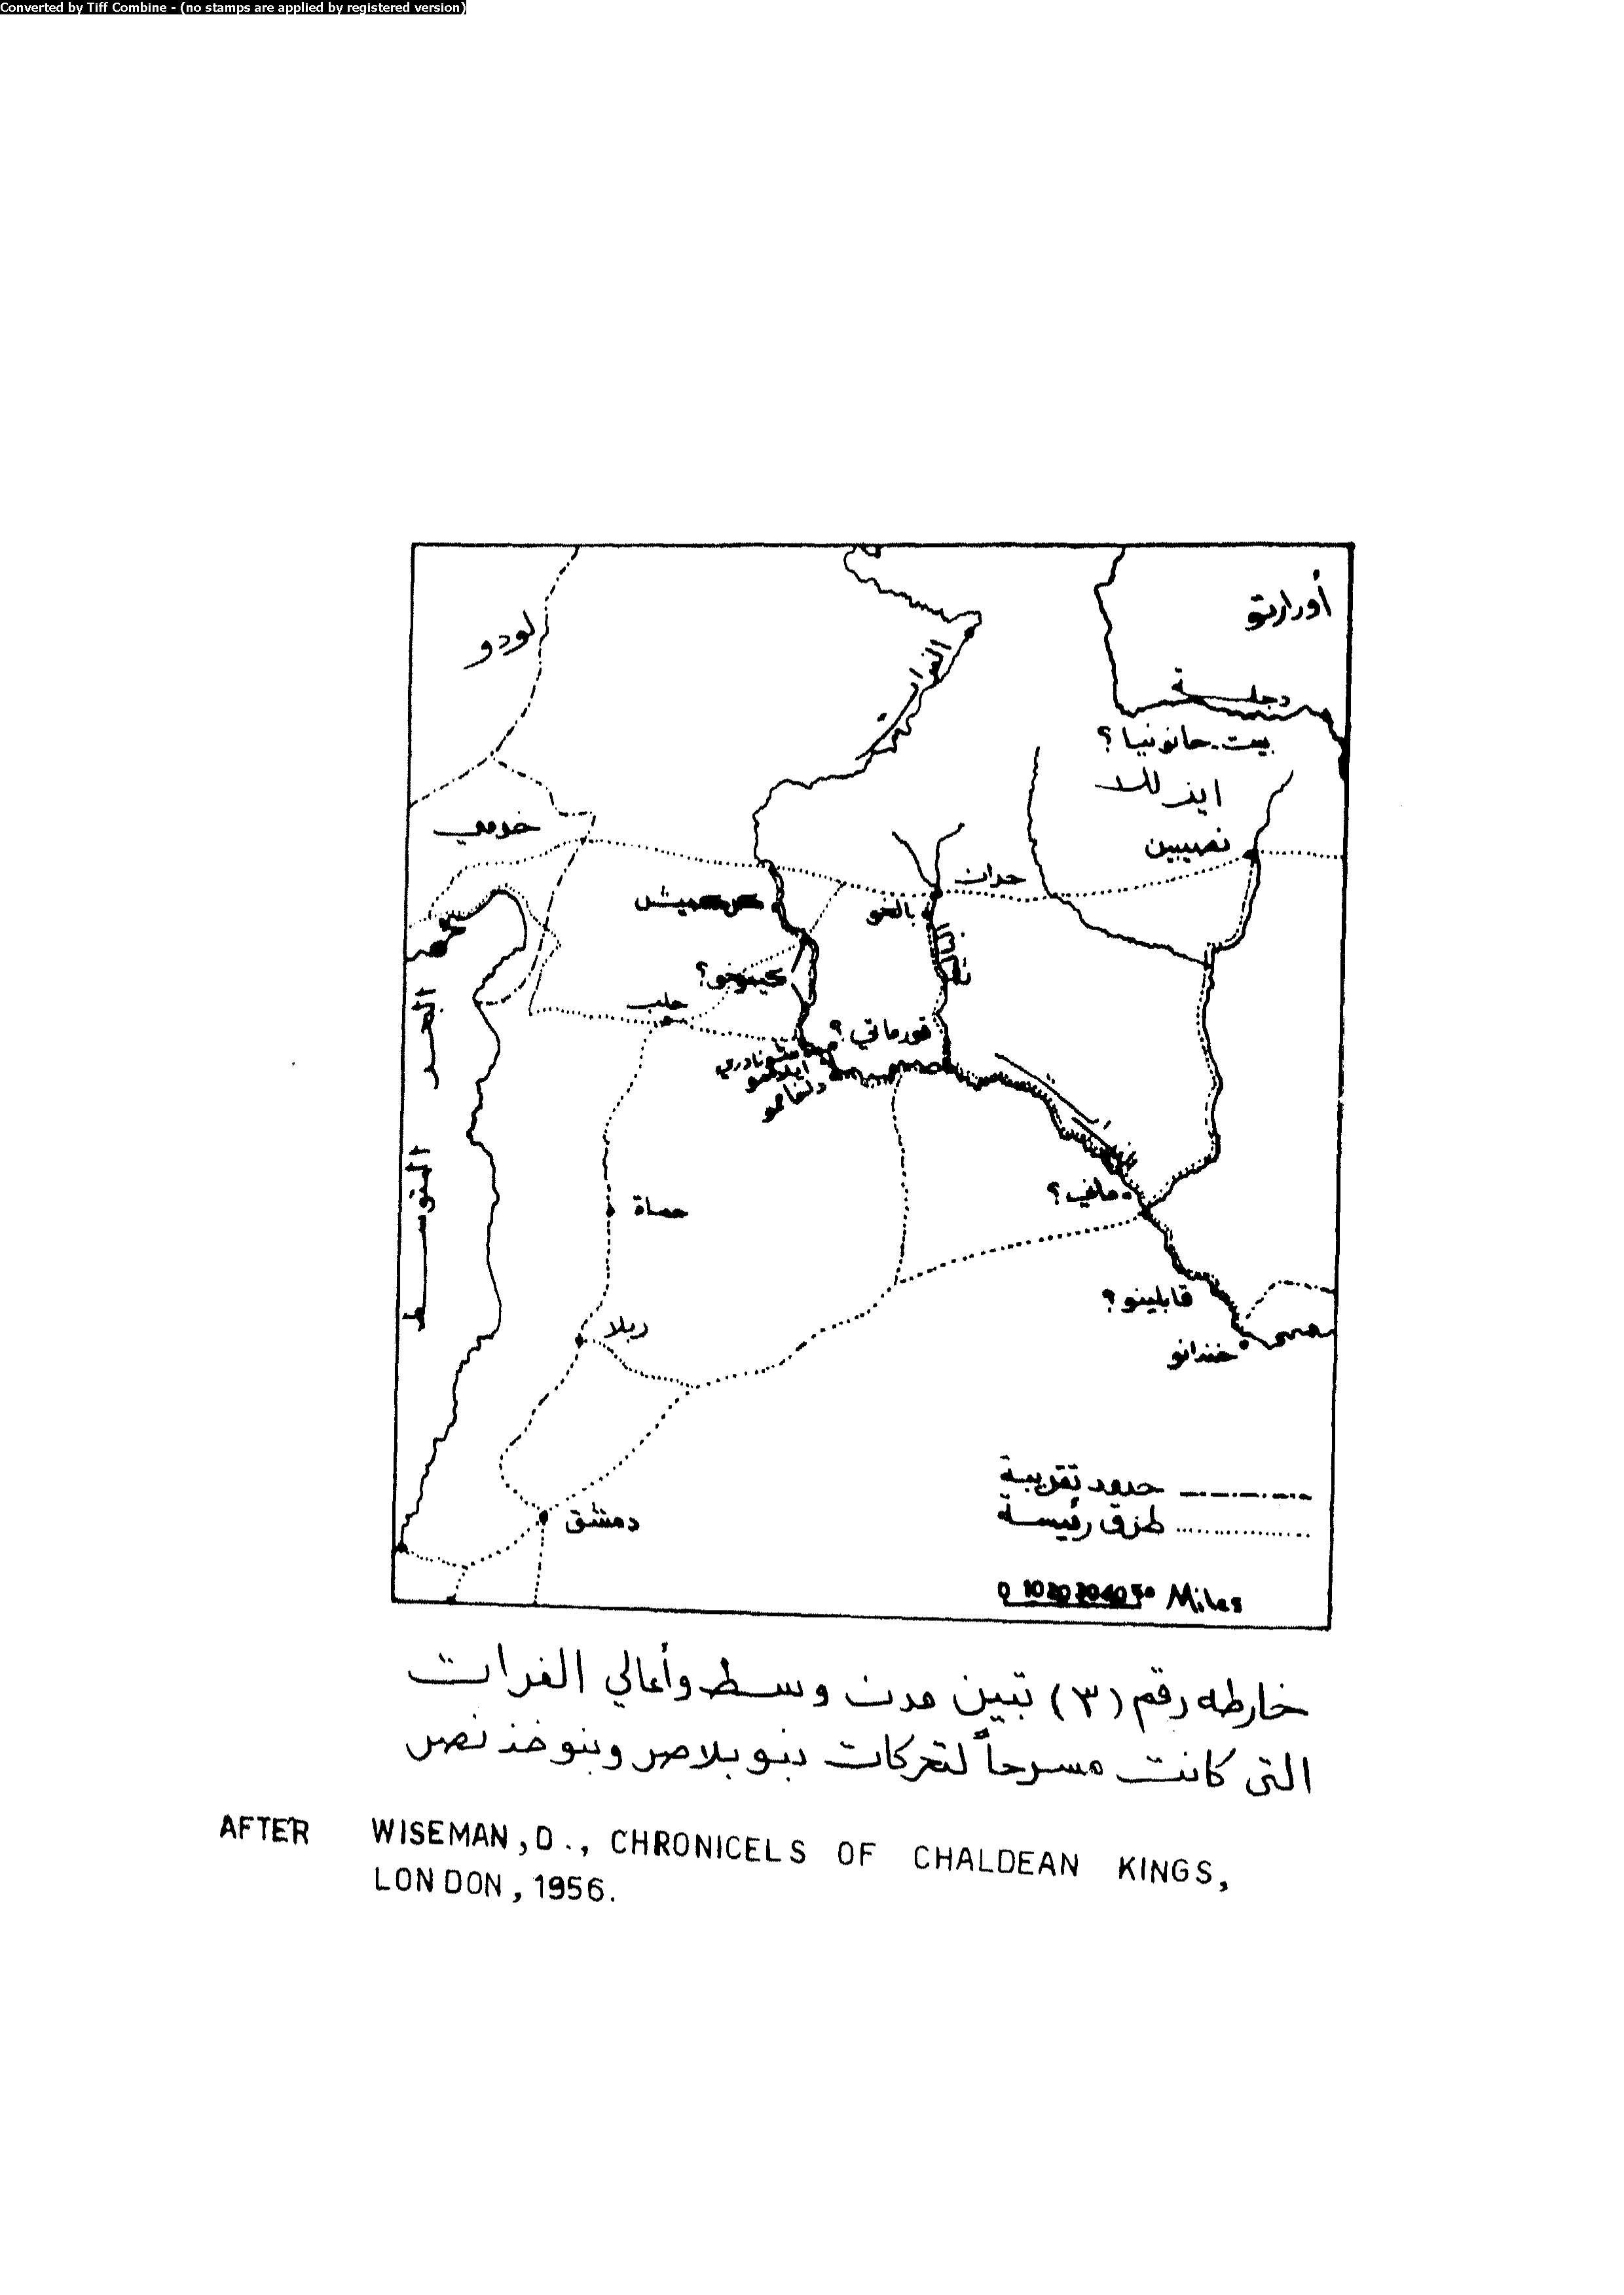 Converted by Tiff Combine - (no stamps are applied by registered version)
أورارتو
لودو
الفرات
دجلة
بيت حانونيا ؟
ايزللا
نصيبين
خومي
حران
بالخو
كركميش
كيموخو ؟
حلب
قورماتي ؟
البحر
المتوسط
حماة
ماني ؟
قابلينو ؟
خندانو
ربلا
دمشق
حدود تقريبية
طرق رئيسة
0 10 20 30 40 50 Miles
خارطه رقم (٣) تبين مدن وسط وأعالي الفرات
التي كانت مسرحاً لتحركات بنو بلاصر وبنوخذ نصر
AFTER WISEMAN, D., CHRONICELS OF CHALDEAN KINGS,
LONDON, 1956.